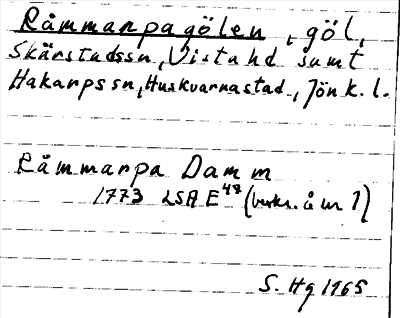 Råmmarpagölen, göl,
Skärstadssn, Vista hd samt
Hakarps sn, Huskvarna stad, Jönk. l.
Råmmarpa Damm
1773 LSA E 47 ( å nr 1)
S. Hg 1965